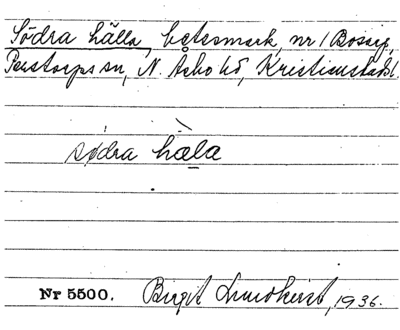 Södra hälla, betesmark, nr 1 Bosarp,
Perstorps sn, N. Åsbo hd, Kristianstads l.
södra hæla
Nr 5500. Birgit Lundkvist, 1936.